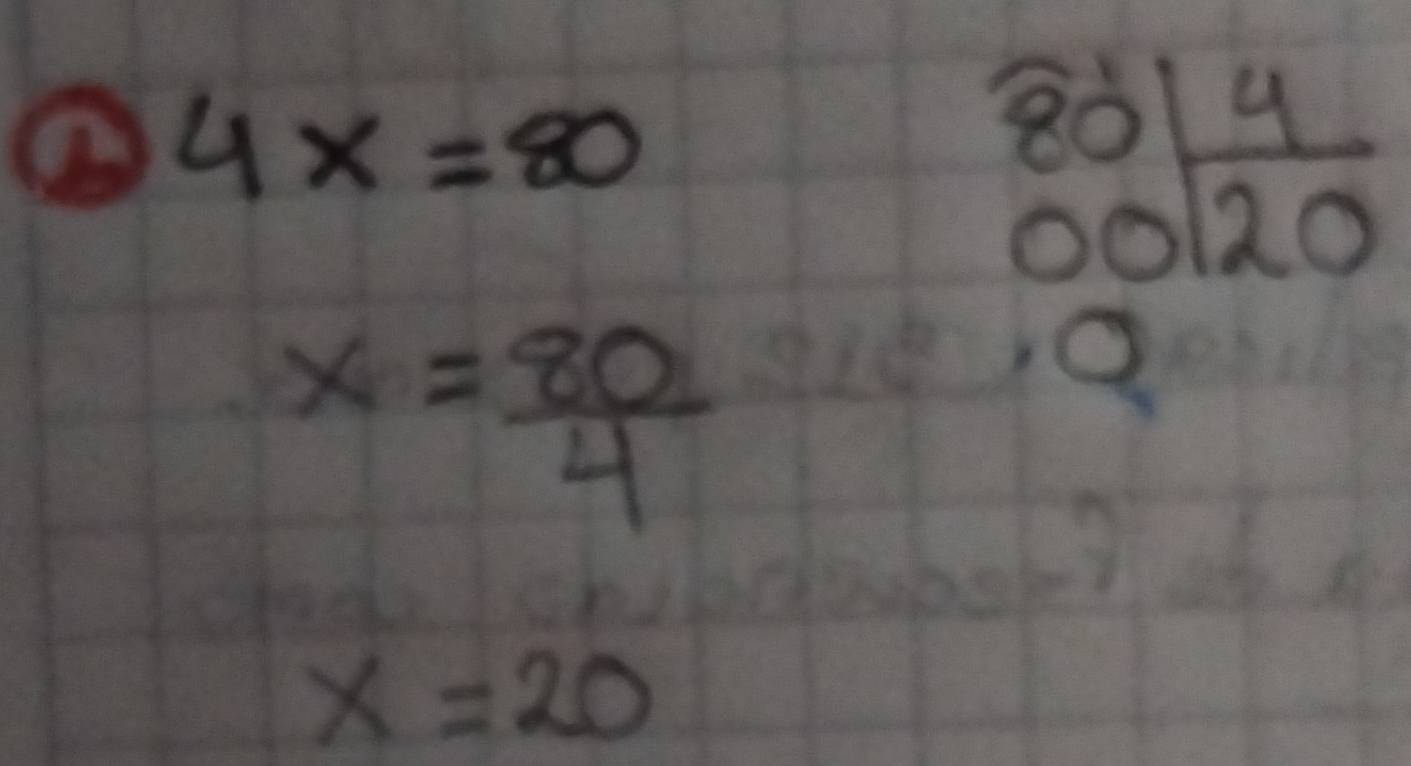 4x = 80
x = 80/4
x = 20
80 | 4
00 | 20
0